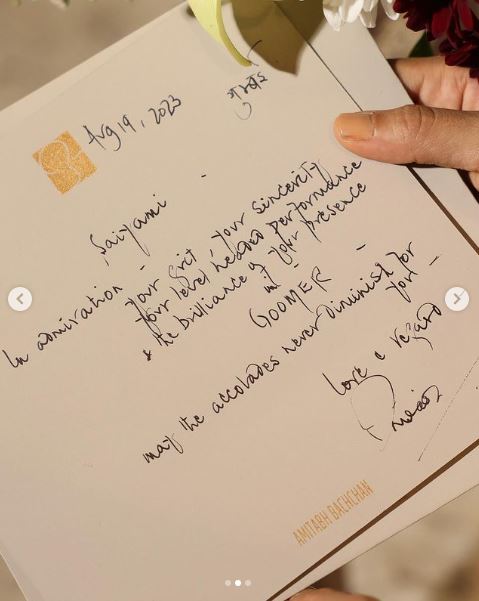 Aug 19, 2023
Saiyami -
In admiration -
your grit, your sincerity
your level headed performance
& the brilliance of your presence
in
GOOMER -
may the accolades never diminish for
you -
love & regard
AMITABH BACHCHAN